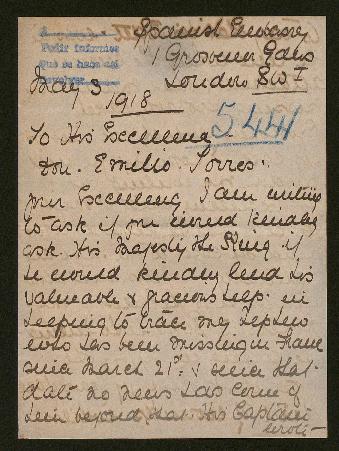 Spanish Embassy
A
Pedir informes
Que se haga así
Devolver
1 Grosvenor Gdns
London SW I
May 3
1918
544
To His Excellency
Don. Emilio Torres.
Your Excellency, I am writing
to ask if you would kindly
ask His Majesty the King if
he would kindly lend his
valuable & gracious help in
helping to trace my nephew
who has been missing in France
since March 21st. & since that
date no news has come of
him beyond that His Captain
wrote